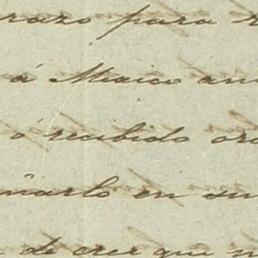 razo para
á Mexico
ó recibido
ñarlo en su
de creer que